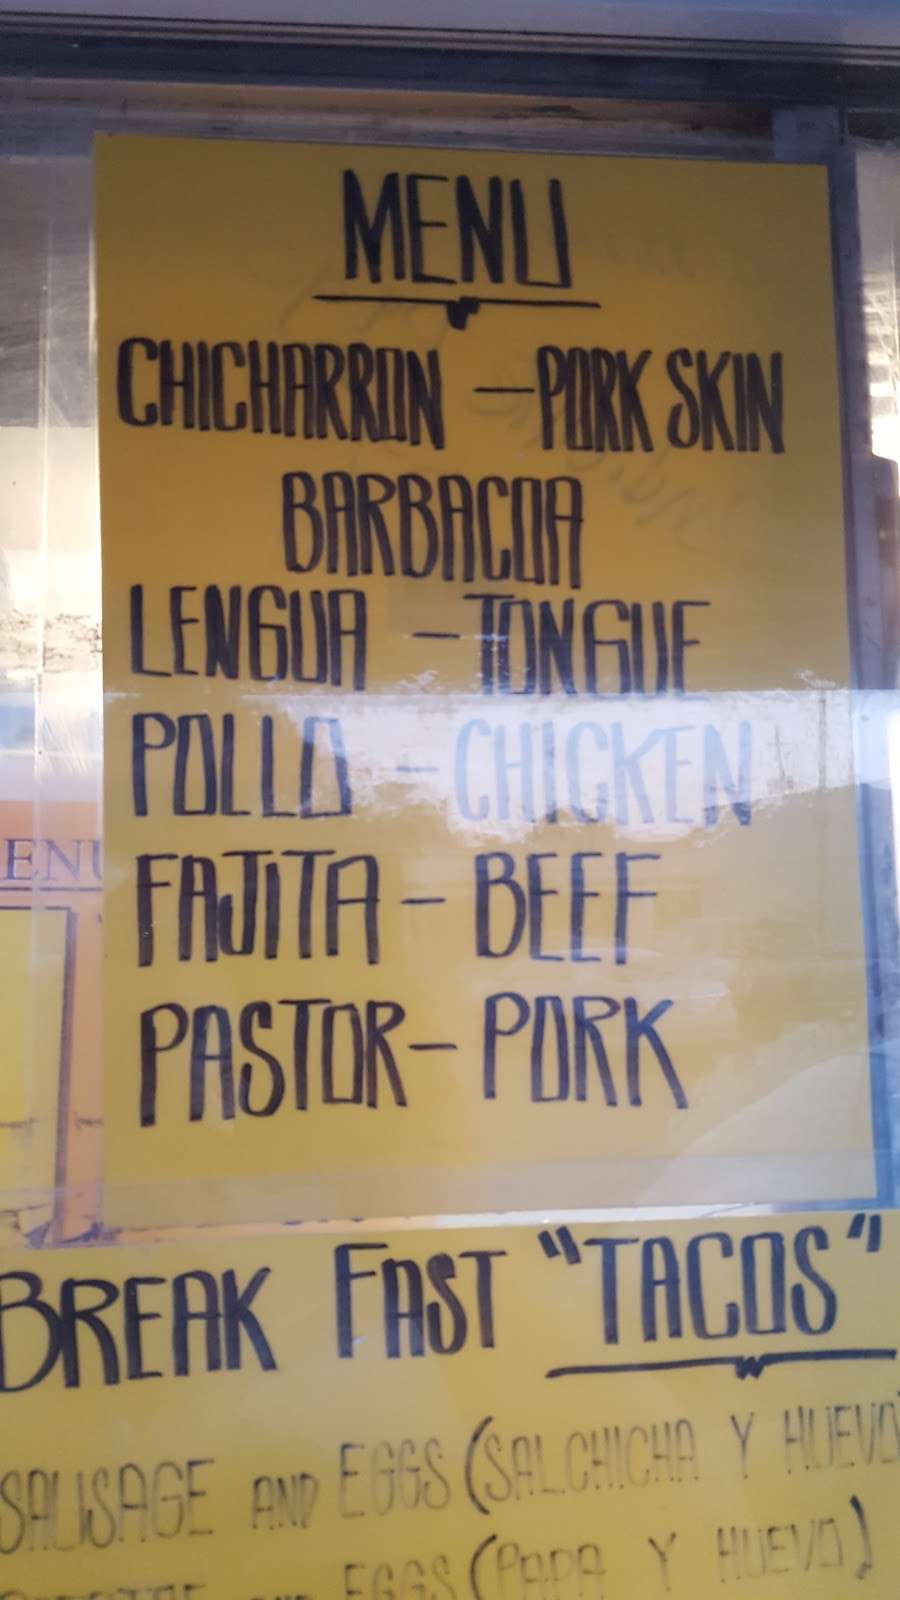 MENU
CHICHARRON - PORK SKIN
BARBACOA
LENGUA - TONGUE
POLLO - CHICKEN
FAJITA - BEEF
PASTOR - PORK
ENU
BREAK FAST "TACOS"
SAUSAGE AND EGGS (SALCHICHA Y HUEVO
EGGS (PAPA Y HUEVO)